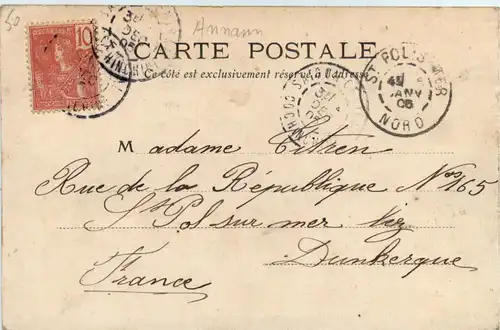 50
Annam
10
CARTE POSTALE
Ce côté est exclusivement réservé à l'adresse
ST POL-S-MER
JANV
05
NORD
Madame Citren
Rue de la République Nos 165
St Pol sur mer lez
Dunkerque
France